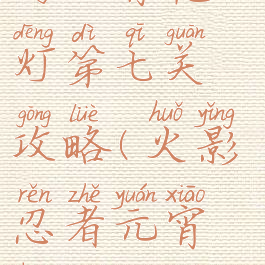 dēng dì qī guān
灯第七关
gōng lüè huǒ yǐng
攻略(火影
rěn zhě yuán xiāo
忍者元宵